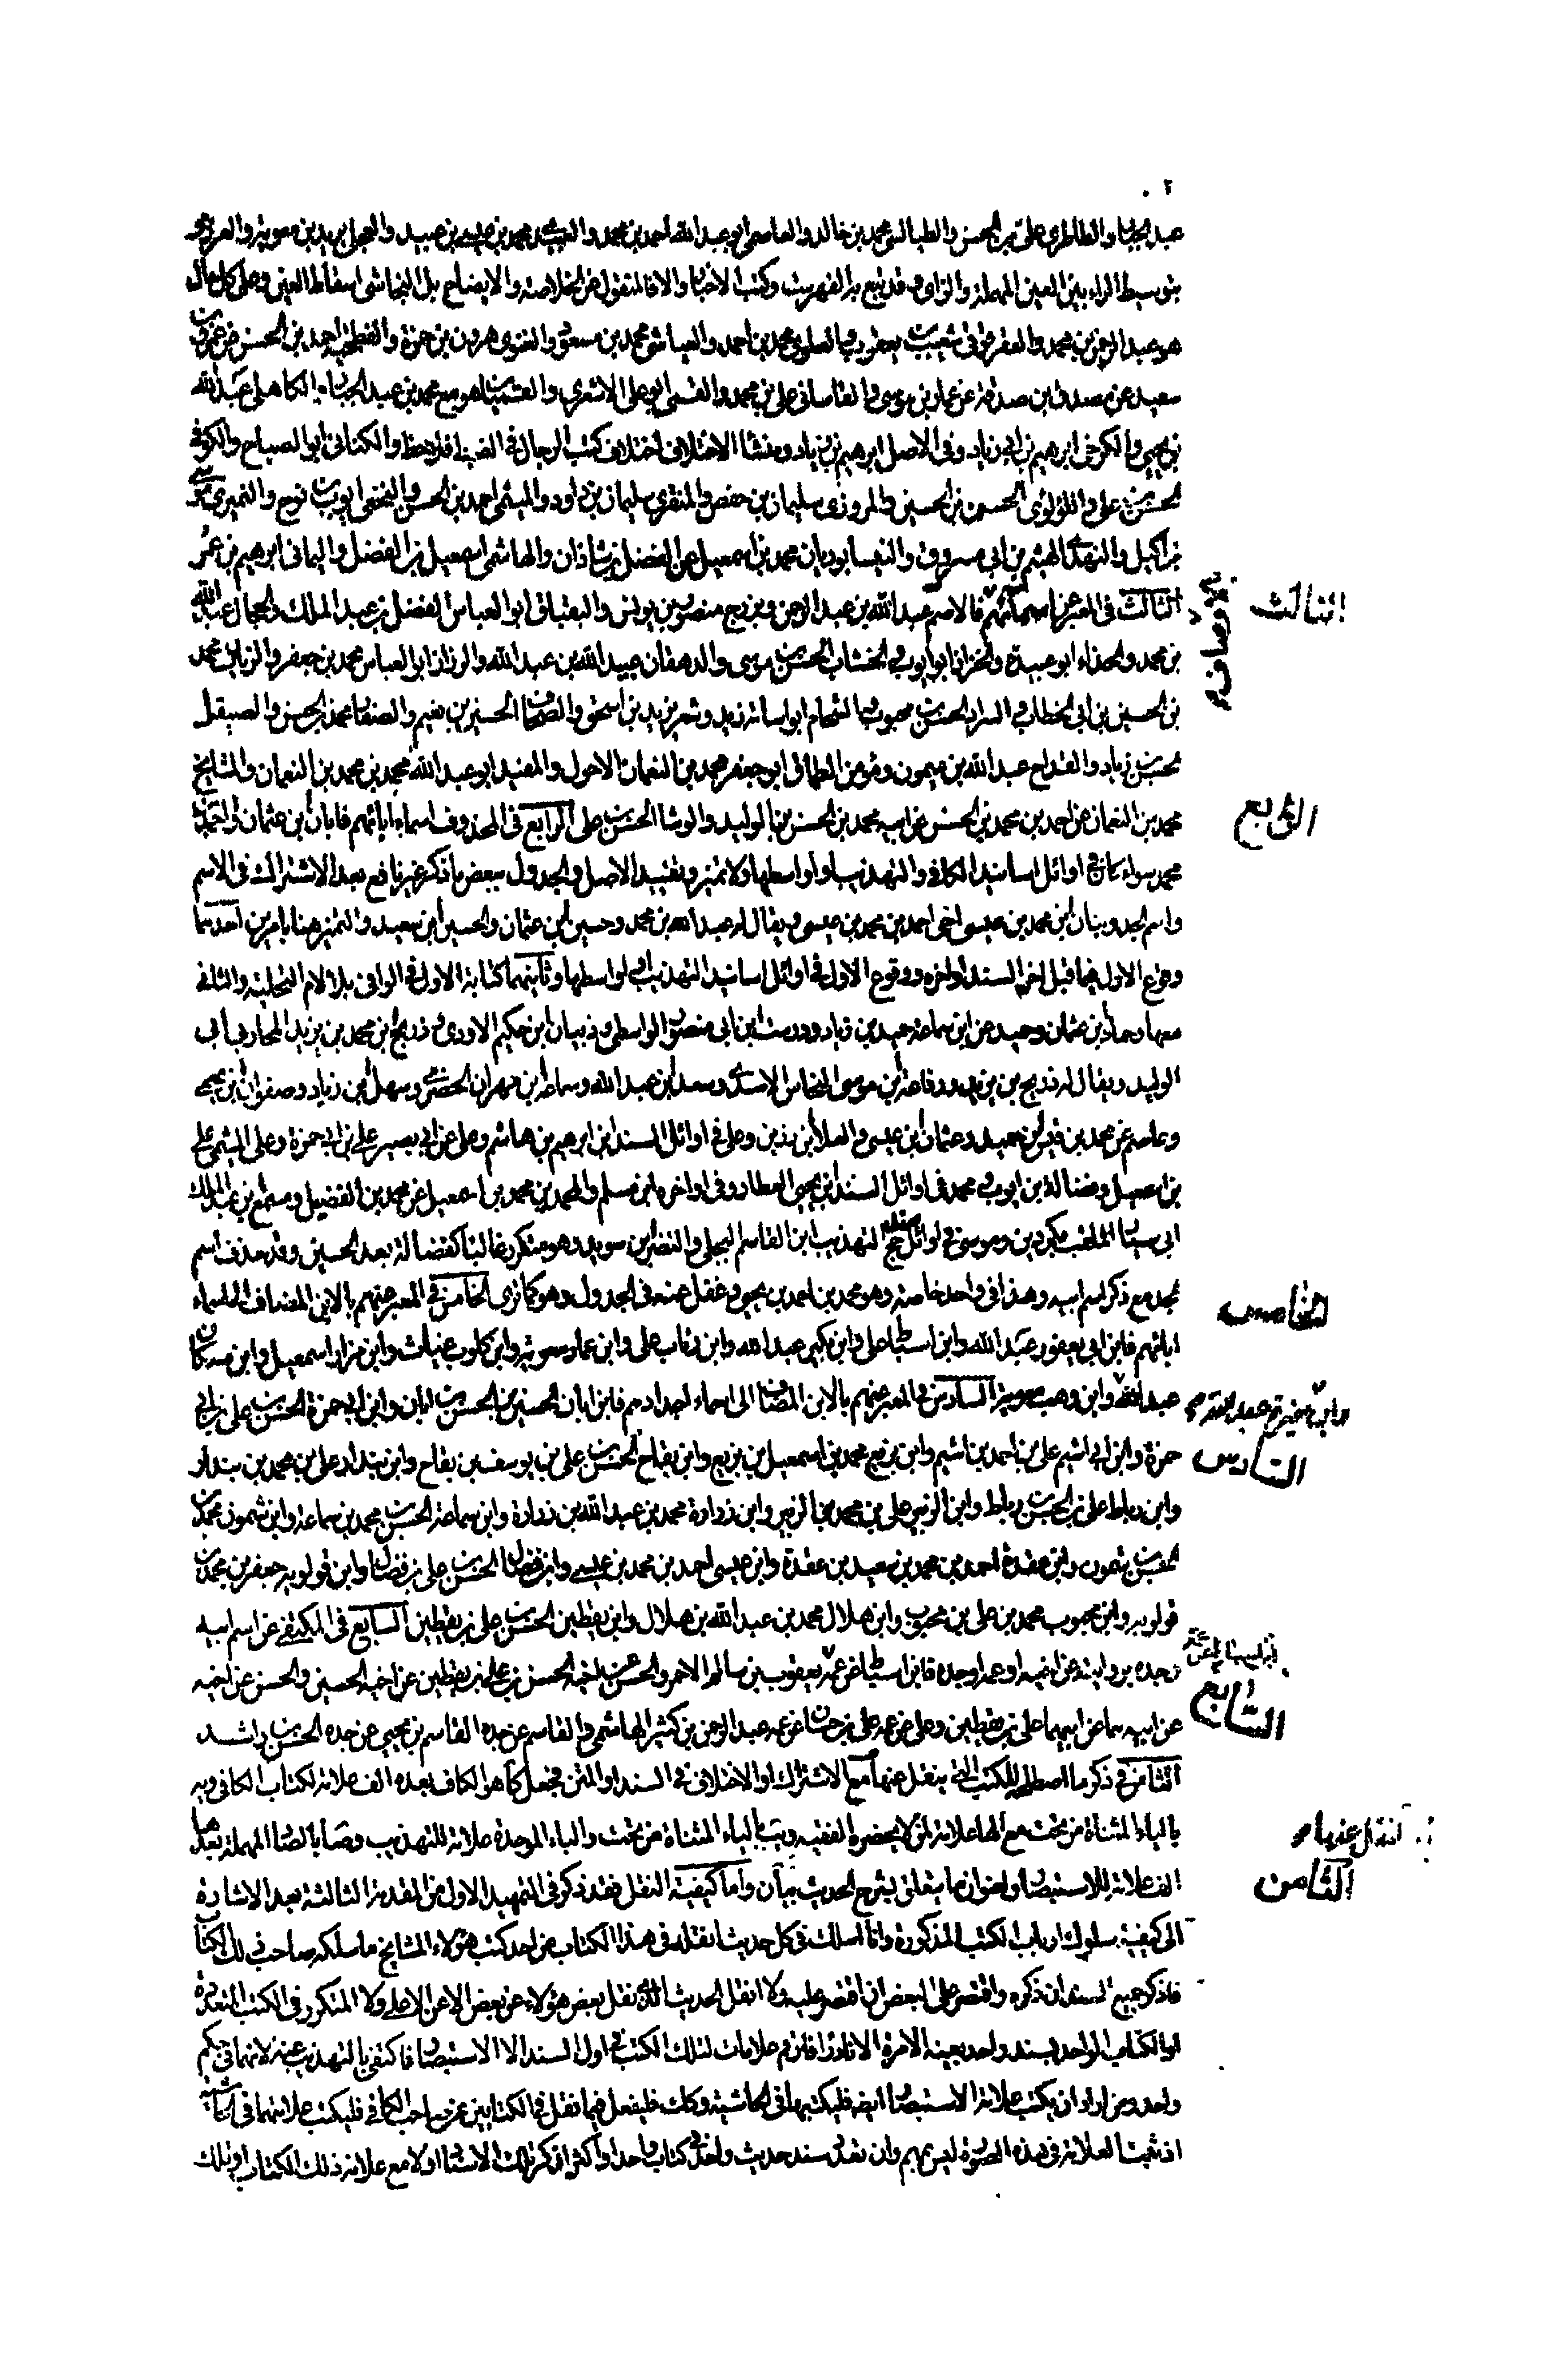 ٢
عبد الجبار والطاطري علي بن الحسن والطيالسي محمد بن خالد والعاصمي ابو عبد الله احمد بن محمد والعبيدي محمد بن عيسى بن عبيد والعجلي بريد بن معوية والعرزمي
بتوسيط الراء بين العين المهملة والزاي وقد تتبع الفهرست وكتب الاخبار والا فالمنقول عن الخلاصة والايضاح بل النجاشي اسقاط العين وعلى كل حال
هو عبد الرحمن بن محمد والعقرقوفي شعيب بن يعقوب والعلوي محمد بن احمد والعياشي محمد بن مسعود والغنوي هرون بن حمزة والفطحية احمد بن الحسن عن عمرو بن
سعيد عن مصدق بن صدقة عن عمار بن موسى والقاساني علي بن محمد والقمي ابو علي الاشعري والقميان هو مع محمد بن عبد الجبار والكاهلي عبد الله
بن يحيى والكرخي ابرهيم بن ابي زياد وفي الاصل ابرهيم بن زياد ومنشا الاختلاف اختلاف كتب الرجال في الضبط فلاحظ والكناني ابو الصباح والكوفي
الحسن بن علي واللؤلؤي الحسن بن الحسين والمروزي سليمان بن حفص والمنقري سليمان بن داود والميثمي احمد بن الحسن والنخعي ايوب بن نوح والنميري موسى
بن اكيل والنهدي الهيثم بن ابي مسروق والنيسابوريان محمد بن اسمعيل عن الفضل بن شاذان والهاشمي اسمعيل بن الفضل واليماني ابرهيم بن عمر
الثالث
الثالث في المعبر عن اسمائهم فالاصم عبد الله بن عبد الرحمن وبزرج منصور بن يونس والبقباق ابو العباس الفضل بن عبد الملك والجمال عبد الله
بن محمد والحذاء ابو عبيدة والخزاز ابو ايوب والخشاب الحسن بن موسى والدهقان عبيد الله بن عبد الله والرزاز ابو العباس محمد بن جعفر والزيات محمد
بن الحسين بن ابي الخطاب والسراد الحسن بن محبوب والشحام ابو اسامة زيد وشعر يزيد بن اسحق والصحاف الحسين بن نعيم والصفار محمد بن الحسن والصيقل
الحسن بن زياد والقداح عبد الله بن ميمون ومؤمن الطاق ابو جعفر محمد بن النعمان الاحول والمفيد ابو عبد الله محمد بن محمد بن النعمان والمشايخ
الرابع
محمد بن النعمان عن احمد بن محمد بن الحسن عن ابيه محمد بن الحسن بن الوليد والوشا الحسن بن علي الرابع في المحذوف اسماء ابائهم فابان بن عثمان واحمد بن
محمد سواء كان في اوائل اسانيد الكافي والتهذيب او اواسطها ولا تميز وتقييد الاصل والجدول ببعض ما ذكر غير نافع بعد الاشتراك في الاسم
واسم الجد وبنان ابن محمد بن عيسى اخي احمد بن محمد بن عيسى ويقال له عبد الله بن محمد وحسين ابن عثمان والحسين ابن سعيد والتميز هنا بامرين احدهما
وقوع الاول فيما قبل اخر السند او اخره ووقوع الاول في اوائل اسانيد التهذيب او اواسطها وثانيهما كتابة الاول في الوافي بلا الام التحلية والثاني
معها وحماد بن عثمان وحميد عن ابن سماعة حميد بن زياد ودرست ابن ابي منصور الواسطي وذبيان ابن حكيم الاودي وذريح ابن محمد بن يزيد المحاربي ابي
الوليد ويقال له ذريح بن يزيد ورفاعة ابن موسى النخاس الاسدي وسعد ابن عبد الله وسماعة ابن مهران الحضرمي وسهل ابن زياد وصفوان ابن يحيى
وعاصم عن محمد بن قيس ابن حميد وعثمان ابن عيسى والعلا ابن رزين وعلي في اوائل السند ابن ابرهيم بن هاشم وعلي عن ابي بصير علي بن ابي حمزة وعلي الميثمي علي
بن اسمعيل وفضالة ابن ايوب ومحمد في اوائل السند ابن يحيى العطار وفي اواخره ابن مسلم والمحمدين محمد بن اسمعيل عن محمد بن الفضيل ومسمع بن عبد الملك
ابي سيار الملقب بكردين وموسى في اوائل سند حج التهذيب ابن القاسم البجلي والنضر ابن سويد وهو متكرر غالبا كفضالة بعد الحسين وقد حذف اسم
الخامس
محمد مع ذكر اسم ابيه وهذا في واحد خاصة وهو محمد بن احمد بن يحيى وغفل عنه في الجدول وهو كما ترى الخامس في المعبر عنهم بالابن المضاف الى اسماء
ابائهم فابن ابي يعفور عبد الله وابن اسباط علي وابن بكير عبد الله وابن رئاب علي وابن عمار معوية وابن كلوب غياث وابن مرار اسمعيل وابن مسكان
عبد الله وابن وهب معوية السادس في المعبر عنهم بالابن المضاف الى اسماء اجدادهم فابن ابان الحسين بن الحسن بن ابان وابن ابي حمزة الحسن بن علي بن ابي
السادس
حمزة وابن اشيم علي بن احمد بن اشيم وابن بزيع محمد بن اسمعيل بن بزيع وابن بقاح الحسن بن علي بن يوسف بن بقاح وابن بندار علي بن محمد بن بندار
وابن رباط علي بن الحسن بن رباط وابن الزبير علي بن محمد بن الزبير وابن زرارة محمد بن عبد الله بن زرارة وابن سماعة الحسن بن محمد بن سماعة وابن شمون محمد بن
الحسن بن شمون وابن عقدة احمد بن محمد بن سعيد بن عقدة وابن عيسى احمد بن محمد بن عيسى وابن فضال الحسن بن علي بن فضال وابن قولويه جعفر بن محمد بن
قولويه وابن محبوب محمد بن علي بن محبوب وابن هلال محمد بن عبد الله بن هلال وابن يقطين الحسن بن علي بن يقطين السابع في المكتفى عن اسم ابيه
وجده بروايته عن اخيه او عمه او جده فابن اسباط عن عمه يعقوب بن سالم الاحمر والحسن عن اخيه الحسن بن علي بن يقطين عن اخيه الحسين والحسن عن اخيه
السابع
عن ابيه هما عن ابيهما علي بن يقطين وعلي عن عمه علي بن حسان عن عمه عبد الرحمن بن كثير الهاشمي والقاسم عن جده القاسم بن يحيى عن جده الحسن بن راشد
الثامن في ذكر ما اصطلح للكتب التي ينقل عنها مع الاشتراك او الاختلاف في السند او المتن فجعل كا هو الكاف بعده الف علامة لكتاب الكافي ويه
انقل عنها
بالياء المثناة من تحت مع الها علامة لمن لا يحضره الفقيه ويب بالياء المثناة من تحت والباء الموحدة علامة للتهذيب وصا بالصاد المهملة بعدها
الثامن
الف علامة للاستبصار ولعنوان ما يتعلق بشرح الحديث بيان واما كيفية النقل فقد ذكر في التمهيد الاول من المقدمة الثالثة بعد الاشارة
الى كيفية سلوك ارباب الكتب المذكورة وانا اسلك في كل حديث انقله في هذا الكتاب عن احد كتب هؤلاء المشايخ ما سلكه صاحب ذلك الكتاب
فاذكر جميع السند ان ذكره واقتصر على البعض ان اقتصر عليه ولا انقل الحديث الذي نقل بعض هؤلاء عن بعض الا عن الاعلى ولا المتكرر في الكتب المتعددة
او الكتاب الواحد بسند واحد بعينه الا مرة الا نادرا فارقم علامات لتلك الكتب في اول السند الا الاستبصار فاكتفي بالتهذيب عنه لانهما في حكم
واحد ومن اراد ان يكتب علامة الاستبصار ايضا فليكتبها في الحاشية وكذلك فليفعل فيما نقل في الكتابين عن صاحب الكافي فليكتب علامتهما في الحاشية
اذ تثبت العلامة في هذه الصورة ليس بمهم وان تعدد سند حديث واحد في كتاب واحد او اكثر اذكر تلك الاسناد اولا مع علامة ذلك الكتاب او تلك